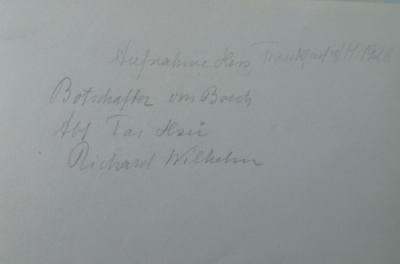 Aufnahme Hess, Frankfurt a/M.
Botschafter von Bosch
Abt Tai Hsü
Richard Wilhelm